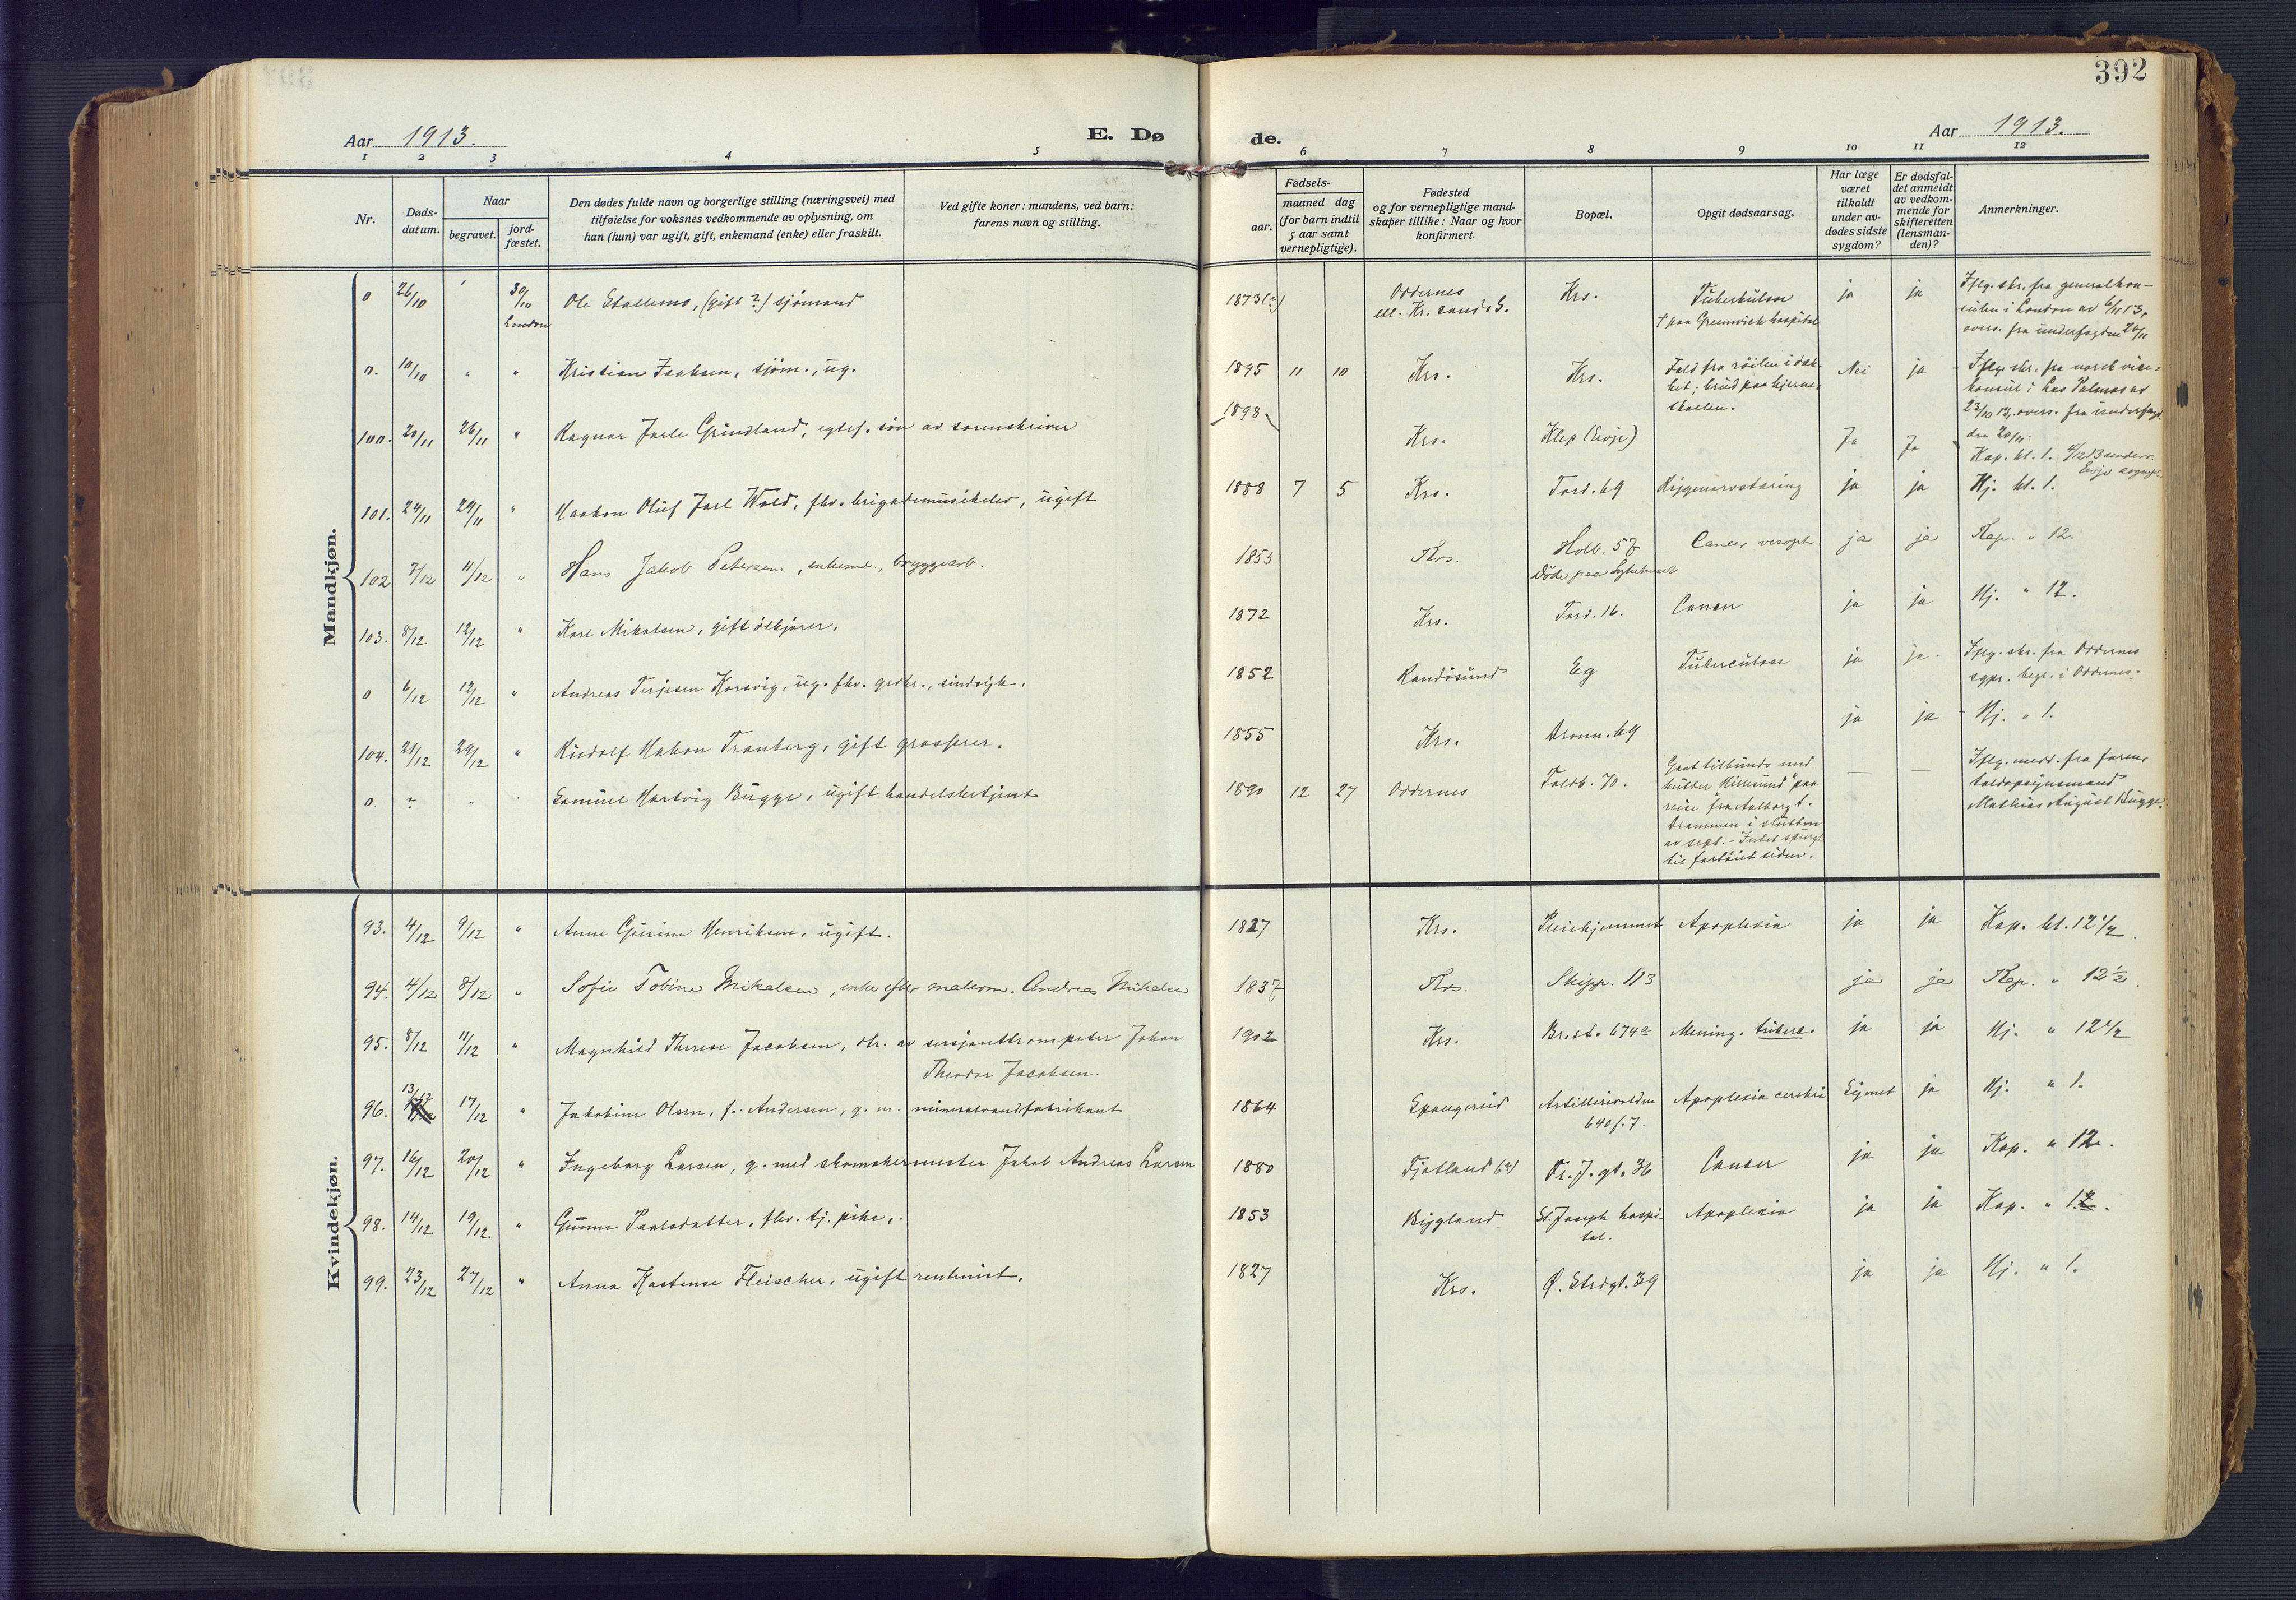 392
Aar 1913. E. Dø de. Aar 1913.
1 2 3 4 5 6 7 8 9 10 11 12
Nr.
Døds-
datum.
Naar
begravet.
jord-
fæstet.
Den dødes fulde navn og borgerlige stilling (næringsvei) med
tilføielse for voksnes vedkommende av oplysning, om
han (hun) var ugift, gift, enkemand (enke) eller fraskilt.
Ved gifte koner: mandens, ved barn:
farens navn og stilling.
Fødsels-
aar.
maaned dag
(for barn indtil
5 aar samt
vernepligtige).
Fødested
og for vernepligtige mand-
skaper tillike: Naar og hvor
konfirmert.
Bopæl.
Opgit dødsaarsag.
Har læge
været
tilkaldt
under av-
dødes sidste
sygdom?
Er dødsfal-
det anmeldt
av vedkom-
mende for
skifteretten
(lensman-
den)?
Anmerkninger.
Mandkjøn.
0 26/10 30/10 London Ole Stallemo, (gift?) sjømand 1873(?) Oddernes ell. Kr.sand S. Krs. Tuberkulose † paa Greenwich hospital ja ja Iflg. skr. fra generalkon-
sulen i London av 6/11 13,
overs. fra underfogden 20/11
0. 10/10 " " Kristian Isaksen, sjøm., ug. 1895 11 10 Krs. Krs. Fald fra røilen i dæk-
ket; brud paa hjerne-
skallen. Nei ja Iflg. skr. fra norsk vice-
konsul i Las Palmas av
23/10 13, overs. fra underfog-
den 20/11.
100. 20/11 26/11 " Ragnar Jarle Grindland, egtef. søn av sorenskriver 1898 Krs. Klep (Evje) Ja Ja Kap. kl. 1. 4/12 13 underr. Evje sognepr.
101. 24/11 29/11 " Haakon Oluf Jarl Wold, fhv. brigademusikelev, ugift 1888 7 5 Krs. Tord. 69 Rygmarvstæring ja ja Hj. kl. 1.
102 7/12 11/12 " Hans Jakob Petersen, enkemd., bryggearb. 1853 Krs. Holb. 57 Døde paa Sykehuset Cancer ja ja Kap. " 12.
103. 8/12 12/12 " Karl Mikalsen, gift ølkjører, 1872 Krs. Tord. 16. Cancer ja ja Hj. " 12.
0 6/12 12/12 " Andreas Terjesen Korsvig, ug. fhv. grdbr., sindssyk. 1852 Randøsund Eg Tuberculose ja ja. Iflg. skr. fra Oddernes
sgpr. begr. i Oddernes.
104. 21/12 29/12 " Rudolf Hakon Tranberg, gift grosserer. 1855 Krs. Dronn. 69 ja ja Hj. " 1.
0. ? - Samuel Hartvig Bugge, ugift handelsbetjent 1890 12 27 Oddernes Toldb. 70. Gaat tilbunds med
kutter "Hillesund" paa
reise fra Aalborg t.
Drammen i slutten
av sept. - Intet spurgt
til fartøiet siden. — — Iflg. medd. fra faren,
toldopsynsmand
Mathias August Bugge.
Kvindekjøn.
93. 4/12 9/12 " Anne Gurine Henriksen, ugift. 1827 Krs. Pleiehjemmet Apoplexia ja ja Kap. kl. 12 1/2.
94. 4/12 8/12 " Sofie Tobine Mikalsen, enke efter malerm. Andreas Mikalsen 1837 Krs. Skipp. 113 ja ja Kap. " 12 1/2.
95. 8/12 11/12 " Magnhild Therese Jacobsen, dtr. av sersjanttrompeter Johan
Theodor Jacobsen. 1902 Krs. Br.st. 674a Mening. tuberc. ja ja Hj. " 12 1/2
96. 13/12 17/12 " Jakobine Olsen, f. Andersen, g. m. mineralvandfabrikant 1864 Spangereid Artillerivolden 640 f. 7. Apoplexia cerebri Synet ja Hj. " 1.
97. 16/12 20/12 " Ingeborg Larsen, g. med skomakermester Jakob Andreas Larsen 1880 Fjotland (?) Fr. J. gt. 36 Cancer ja ja Kap. " 12.
98. 14/12 19/12 " Gunne Paalsdatter, fhv. tj. pike, 1853 Bygland St. Joseph hospi-
tal. Apoplexia ja ja Kap. " 12.
99. 23/12 27/12 " Anna Kastense Fleischer, ugift rentenist. 1827 Krs. Ø. Strdgt. 39 ja ja Hj. " 1.